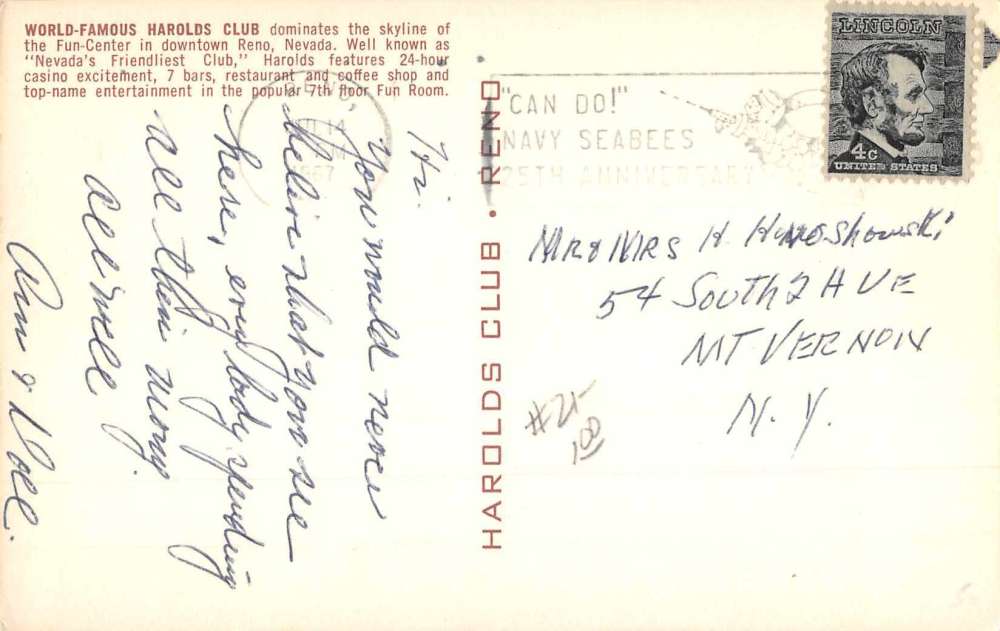 WORLD-FAMOUS HAROLDS CLUB dominates the skyline of
the Fun-Center in downtown Reno, Nevada. Well known as
"Nevada's Friendliest Club," Harolds features 24-hour
casino excitement, 7 bars, restaurant and coffee shop and
top-name entertainment in the popular 7th floor Fun Room.
Hi.
You would never
believe what you see
here, every body spending
all their mony.
All well
Ann &
HAROLDS CLUB • RENO
RENO,
14
PM
1967
"CAN DO!"
NAVY SEABEES
25TH ANNIVERSARY
LINCOLN
4c
UNITED STATES
Mr & MRS H.
54 South 2 AVE
MT VERNON
N. Y.
#21-
100